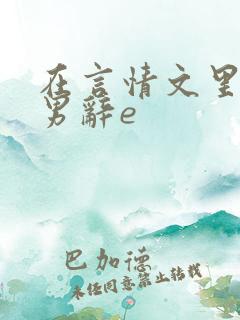 在言情文里
男辭e
巴加德
未经同意禁止转载